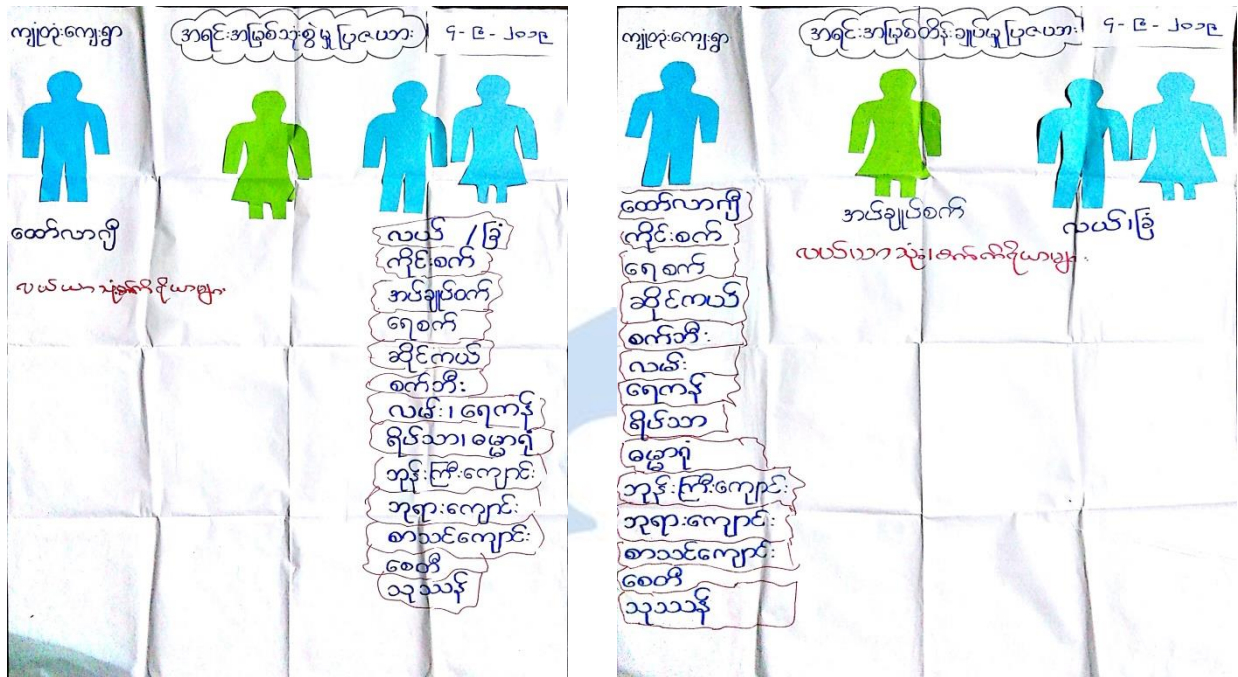 ကျုံတုံးကျေးရွာ
အရင်းအမြစ်သုံးစွဲမှု ပြဇယား
၄-၉-၂၀၁၉
ထော်လာဂျီ
လယ်ယာသုံးစက်ကိရိယာများ
လယ် / ခြံ
ကိုင်းစက်
အပ်ချုပ်စက်
ရေစက်
ဆိုင်ကယ်
စက်ဘီး
လမ်း၊ ရေကန်
ရိပ်သာ၊ ဓမ္မာရုံ
ဘုန်းကြီးကျောင်း
ဘုရားကျောင်း
စာသင်ကျောင်း
စေတီ
သုဿန်
ကျုံတုံးကျေးရွာ
အရင်းအမြစ်ထိန်းချုပ်မှု ပြဇယား
၄-၉-၂၀၁၉
ထော်လာဂျီ
ကိုင်းစက်
ရေစက်
ဆိုင်ကယ်
စက်ဘီး
လမ်း
ရေကန်
ရိပ်သာ
ဓမ္မာရုံ
ဘုန်းကြီးကျောင်း
ဘုရားကျောင်း
စာသင်ကျောင်း
စေတီ
သုဿန်
အပ်ချုပ်စက်
လယ်ယာသုံးစက်ကိရိယာများ
လယ်၊ခြံ